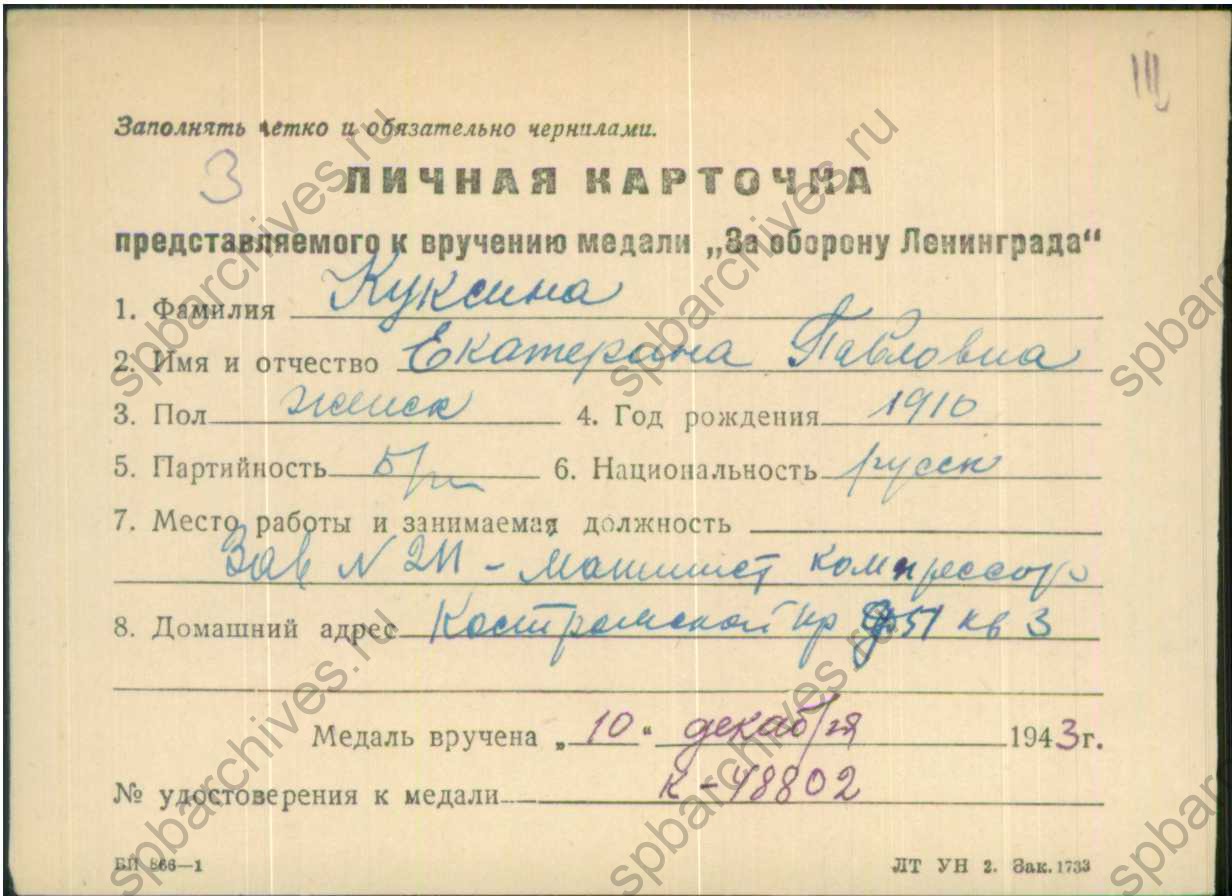 Заполнять четко и обязательно чернилами.
3 ЛИЧНАЯ КАРТОЧКА
представляемого к вручению медали „За оборону Ленинграда“
1. Фамилия Куксина
2. Имя и отчество Екатерина Павловна
3. Пол женск 4. Год рождения 1910
5. Партийность б/п 6. Национальность русск
7. Место работы и занимаемая должность
Зав N 211 - машинист компрессор
8. Домашний адрес Костромской пр 51 кв 3
Медаль вручена „10“ декабря 1943г.
№ удостоверения к медали К-48802
БИ 866—1 ЛТ УН 2. Зак. 1733
spbarchives.ru
spbarchives.ru
spbarchives.ru
spbarchives.ru